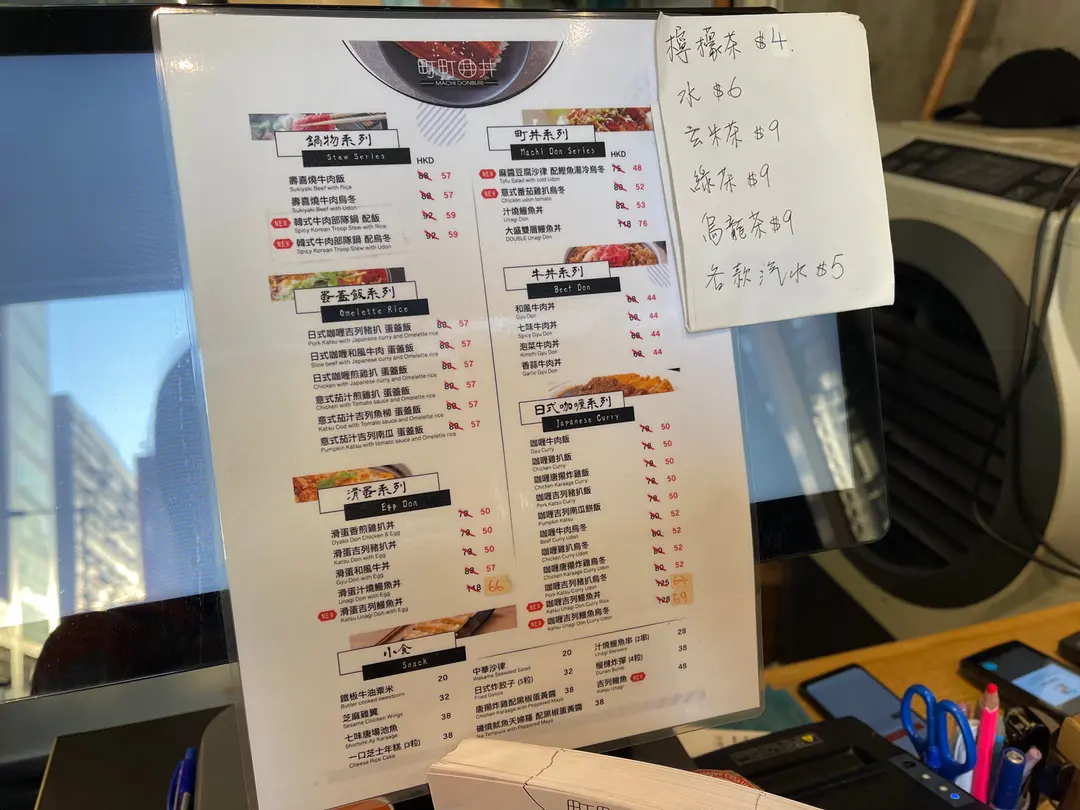 町町丼丼
MACHI DONBURI
鍋物系列
Stew Series
HKD
壽喜燒牛肉飯 88 57
Sukiyaki Beef with Rice
壽喜燒牛肉烏冬 88 57
Sukiyaki Beef with Udon
NEW 韓式牛肉部隊鍋 配飯 92 59
Spicy Korean Troop Stew with Rice
NEW 韓式牛肉部隊鍋 配烏冬 92 59
Spicy Korean Troop Stew with Udon
蛋蓋飯系列
Omelette Rice
日式咖喱吉列豬扒 蛋蓋飯 88 57
Pork Katsu with Japanese curry and Omelette rice
日式咖喱和風牛肉 蛋蓋飯 88 57
Slice beef with Japanese curry and Omelette rice
日式咖喱煎雞扒 蛋蓋飯 88 57
Chicken with Japanese curry and Omelette rice
意式茄汁煎雞扒 蛋蓋飯 88 57
Chicken with Tomato sauce and Omelette rice
意式茄汁吉列魚柳 蛋蓋飯 88 57
Katsu Cod with Tomato sauce and Omelette rice
意式茄汁吉列南瓜 蛋蓋飯 88 57
Pumpkin Katsu with tomato sauce and Omelette rice
滑蛋系列
Egg Don
滑蛋香煎雞扒丼 78 50
Oyako Don Chicken & Egg
滑蛋吉列豬扒丼 78 50
Katsu Don with Egg
滑蛋和風牛丼 78 50
Gyu Don with Egg
滑蛋汁燒鰻魚丼 88 57
Unagi Don with Egg
NEW 滑蛋吉列鰻魚丼 118 66
Katsu Unagi Don with Egg
町丼系列
Machi Don Series
HKD
NEW 麻醬豆腐沙律 配鰹魚湯冷烏冬 75 48
Tofu Salad with cold Udon
NEW 意式番茄雞扒烏冬 80 52
Chicken udon tomato
汁燒鰻魚丼 82 53
Unagi Don
大盛雙層鰻魚丼 118 76
DOUBLE Unagi Don
牛丼系列
Beef Don
和風牛肉丼 68 44
Gyu Don
七味牛肉丼 68 44
Spicy Gyu Don
泡菜牛肉丼 68 44
Kimchi Gyu Don
香蒜牛肉丼 68 44
Garlic Gyu Don
日式咖喱系列
Japanese Curry
咖喱牛肉飯 78 50
Gyu Curry
咖喱雞扒飯 78 50
Chicken Curry
咖喱唐揚炸雞飯 78 50
Chicken Karaage Curry
咖喱吉列豬扒飯 78 50
Pork Katsu Curry
咖喱吉列南瓜餅飯 78 50
Pumpkin Katsu
咖喱牛肉烏冬 80 52
Beef Curry Udon
咖喱雞扒烏冬 80 52
Chicken Curry Udon
咖喱唐揚炸雞烏冬 80 52
Chicken Karaage Curry Udon
咖喱吉列豬扒烏冬 80 52
Pork Katsu Curry Udon
NEW 咖喱吉列鰻魚丼 125 67
Katsu Unagi Don Curry Rice
NEW 咖喱吉列鰻魚烏冬 128 69
Katsu Unagi Don Curry Udon
小食
Snack
鐵板牛油粟米 20
Butter cooked sweetcorn
芝麻雞翼 32
Sesame Chicken Wings
七味唐揚池魚 38
Shichimi Aji Karaage
一口芝士年糕 (3粒) 38
Cheese Rice Cake
中華沙律 20
Wakame Seaweed Salad
日式炸餃子 (5粒) 32
Fried Gyoza
唐揚炸雞配黑椒蛋黃醬 38
Chicken Karaage with Peppered Mayo
磯燒魷魚天婦羅 配黑椒蛋黃醬 38
Ika Tempura with Peppered Mayo
汁燒鰻魚串 (2串) 28
Unagi Skewers
榴槤炸彈 (4粒) 38
Durian Bomb
吉列鰻魚 NEW 48
Katsu Unagi
檸檬茶 $4.
水 $6
玄米茶 $9
綠茶 $9
烏龍茶 $9
各款汽水 $5
町町